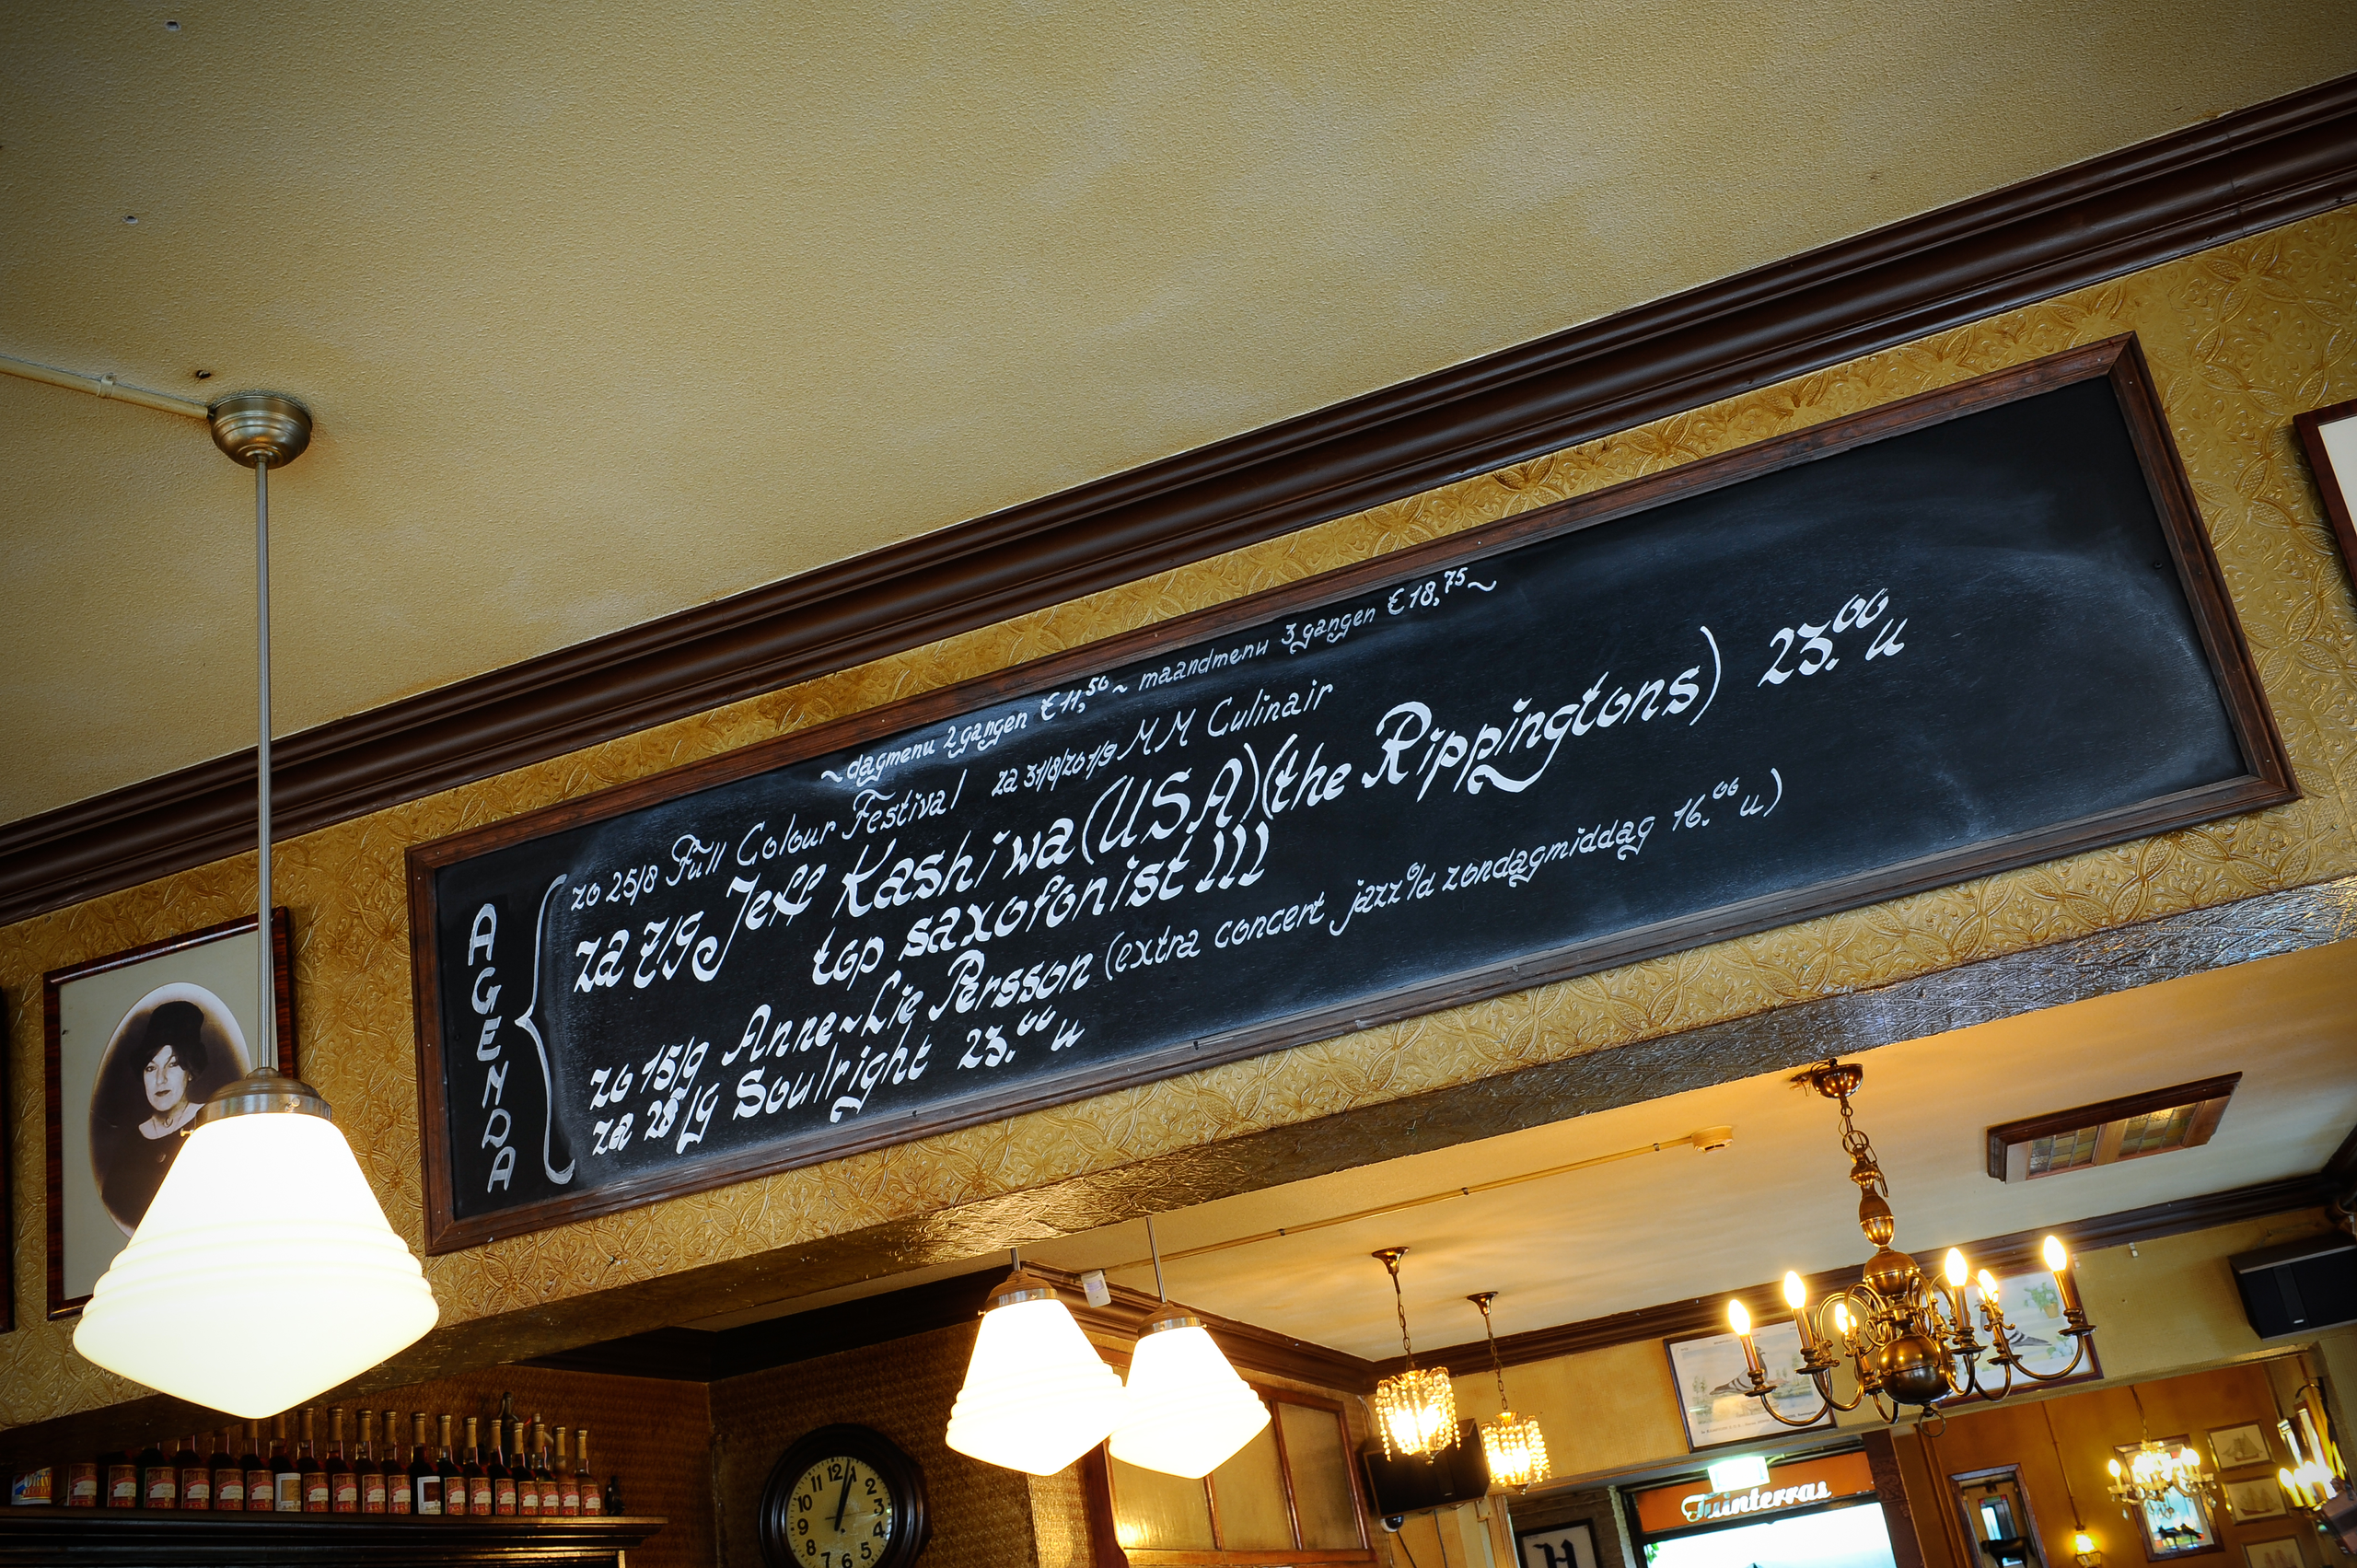 ~ dagmenu 2 gangen €11,50 ~ maandmenu 3 gangen €18,75 ~
AGENDA
zo 25/8 Full Colour Festival za 31/8/zo 1/9 MM Culinair
za 7/9 Jeff Kashiwa (USA) (the Rippingtons) 23.00 u
top saxofonist !!!
zo 15/9 Anne~Lie Persson (extra concert jazz o/d zondagmiddag 16.00 u)
za 28/9 Soulright 23.00 u
11 12 1
10 2
9 3
8 4
7 6 5
Tuinterras
H